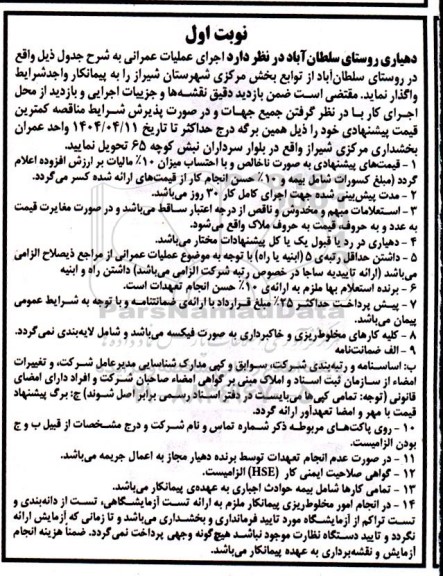 نوبت اول
دهیاری روستای سلطان‌آباد در نظر دارد اجرای عملیات عمرانی به شرح جدول ذیل واقع
در روستای سلطان‌آباد از توابع بخش مرکزی شهرستان شیراز را به پیمانکار واجدشرایط
واگذار نماید. مقتضی است ضمن بازدید دقیق نقشه‌ها و جزییات اجرایی و بازدید از محل
اجرای کار با در نظر گرفتن جمیع جهات و در صورت پذیرش شرایط مناقصه کمترین
قیمت پیشنهادی خود را ذیل همین برگه درج حداکثر تا تاریخ ۱۴۰۴/۰۴/۱۱ واحد عمران
بخشداری مرکزی شیراز واقع در بلوار سرداران نبش کوچه ۶۵ تحویل نمایید.
۱ - قیمت‌های پیشنهادی به صورت ناخالص و با احتساب میزان ۱۰٪ مالیات بر ارزش افزوده اعلام
گردد (مبلغ کسورات شامل بیمه و ۱۰٪ حسن انجام کار از قیمت‌های ارائه شده کسر می‌گردد.
۲ - مدت پیش‌بینی شده جهت اجرای کامل کار ۳۰ روز می‌باشد.
۳ - استعلامات مبهم و مخدوش و ناقص از درجه اعتبار ساقط می‌باشد و در صورت مغایرت قیمت
به عدد و به حروف، قیمت به حروف ملاک واقع می‌شود.
۴ - دهیاری در رد یا قبول یک یا کل پیشنهادات مختار می‌باشد.
۵ - داشتن حداقل رتبه‌ی ۵ (ابنیه یا راه) با توجه به موضوع عملیات عمرانی از مراجع ذیصلاح الزامی
می‌باشد (ارائه تاییدیه ساجا در خصوص رتبه شرکت الزامی می‌باشد) داشتن راه و ابنیه
۶ - برنده استعلام بها ملزم به ارائه‌ی ۱۰٪ حسن انجام تعهدات است.
۷ - پیش پرداخت حداکثر ۲۵٪ مبلغ قرارداد با ارائه‌ی ضمانتنامه و با توجه به شرایط عمومی
پیمان می‌باشد.
۸ - کلیه کارهای مخلوط‌ریزی و خاکبرداری به صورت فیکسه می‌باشد و شامل لایه‌بندی نمی‌گردد.
۹ - الف ضمانت‌نامه
ب: اساسنامه و رتبه‌بندی شرکت، سوابق و کپی مدارک شناسایی مدیرعامل شرکت، و تغییرات
امضاء از سازمان ثبت اسناد و املاک مبنی بر گواهی امضاء صاحبان شرکت و افراد دارای امضای
قانونی (توجه: تمامی کپی‌ها می‌بایست در دفتر اسناد رسمی برابر اصل شوند) ج: برگ پیشنهاد
قیمت با مهر و امضا تعهدآور ارائه گردد.
۱۰ - روی پاکت‌های مربوطه ذکر شماره تماس و نام شرکت و درج مشخصات از قبیل ب و ج
بودن الزامیست.
۱۱ - در صورت عدم انجام تعهدات توسط برنده دهیار مجاز به اعمال جریمه می‌باشد.
۱۲ - گواهی صلاحیت ایمنی کار (HSE) الزامیست.
۱۳ - تمامی کارها شامل بیمه حوادث اجباری به عهده‌ی پیمانکار می‌باشد.
۱۴ - در انجام امور مخلوط‌ریزی پیمانکار ملزم به ارائه تست آزمایشگاهی، تست از دانه‌بندی و
تست تراکم از آزمایشگاه مورد تایید فرمانداری و بخشداری می‌باشد و تا زمانی که آزمایش ارائه
نگردد و تایید دستگاه نظارت موجود نباشد هیچ‌گونه وجهی پرداخت نمی‌گردد. ضمناً هزینه انجام
آزمایش و نقشه‌برداری به عهده پیمانکار می‌باشد.